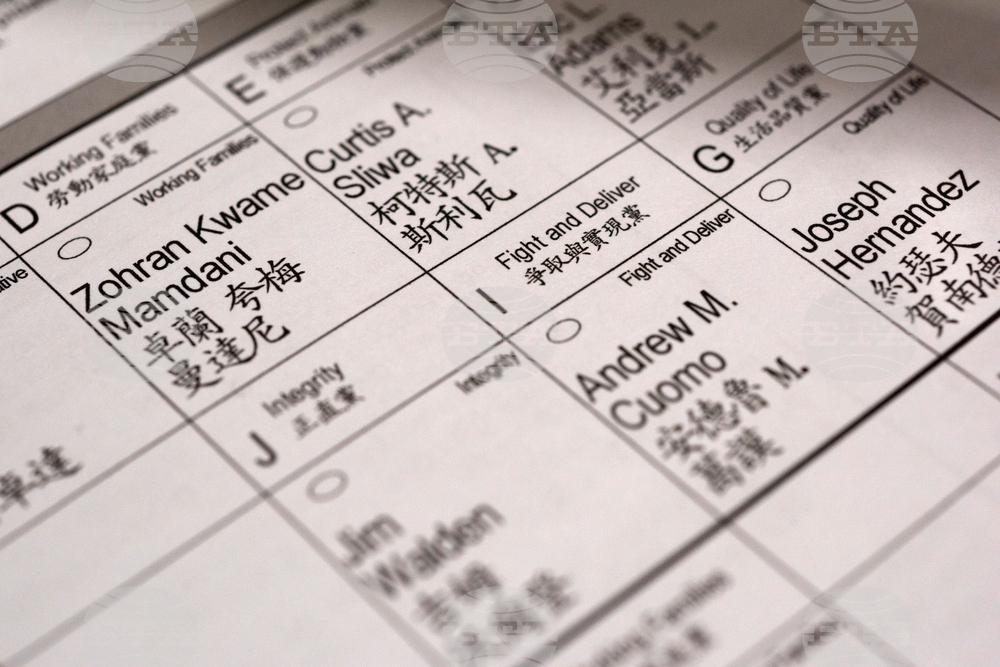 BTA
BTA
BTA
E
Protect Animals
保護動物黨
Protect
D
Working Families
勞動家庭黨
Working Families
Zohran Kwame
Mamdani
卓蘭 夸梅
曼達尼
Curtis A.
Sliwa
柯特斯 A.
斯利瓦
L.
Adams
艾利克 L.
亞當斯
G
Quality of Life
生活品質黨
Quality of Life
Joseph
Hernandez
約瑟夫
賀南德
I
Fight and Deliver
爭取與實現黨
Fight and Deliver
Andrew M.
Cuomo
安德魯 M.
葛謨
J
Integrity
正直黨
Integrity
Jim
Walden
吉姆
卓達
Families